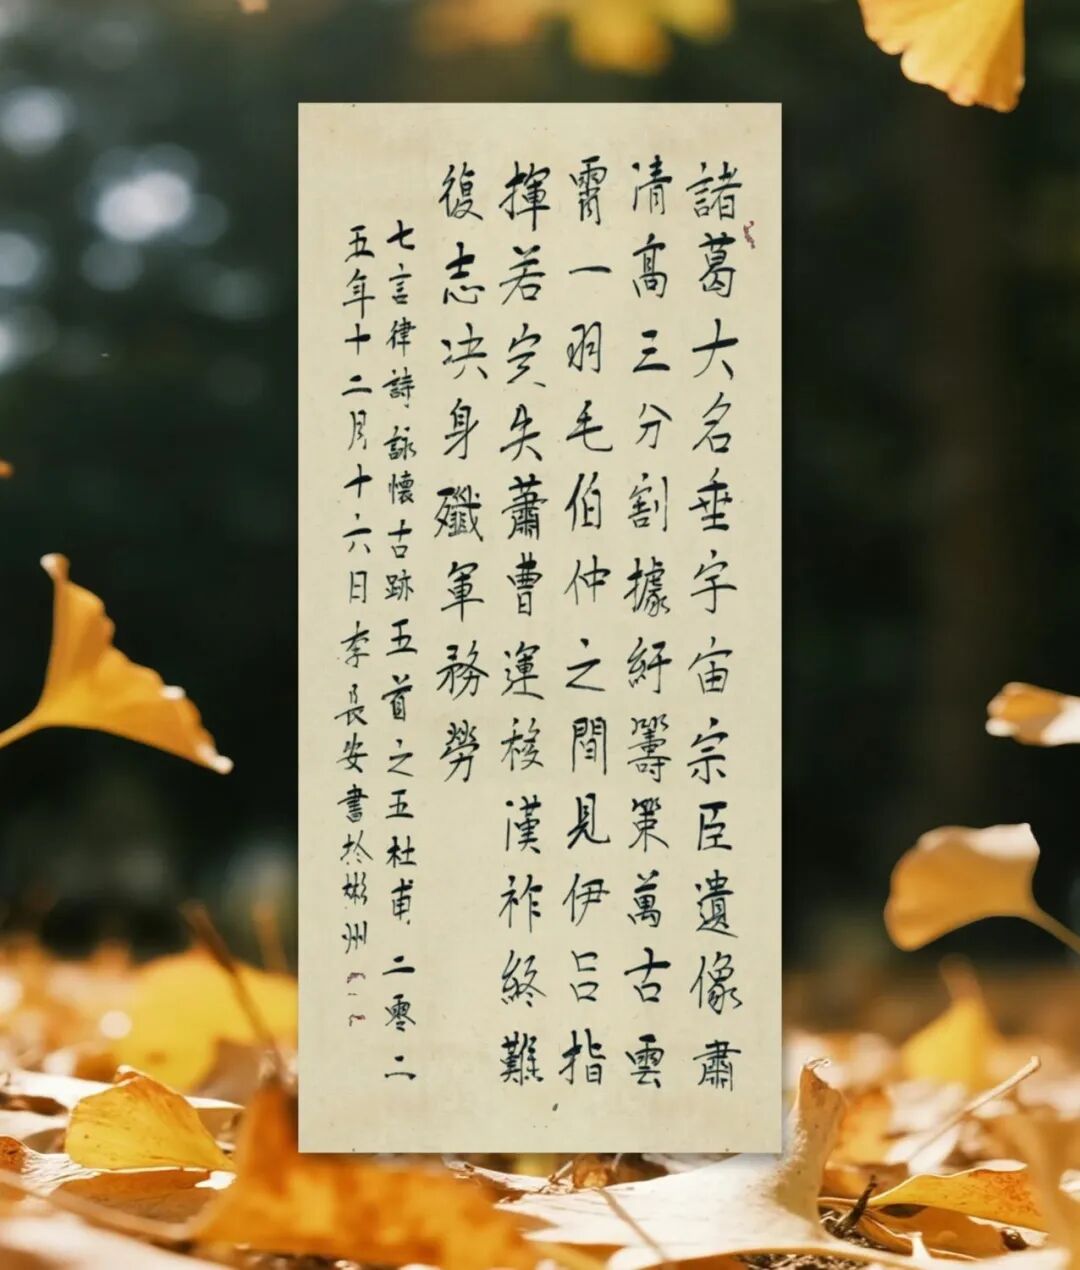 諸葛大名垂宇宙宗臣遺像肅
清高三分割據紆籌策萬古雲
霄一羽毛伯仲之間見伊呂指
揮若定失蕭曹運移漢祚終難
復志决身殲軍務勞
七言律詩詠懷古跡五首之五杜甫二零二
五年十二月十六日李長安書於彬州